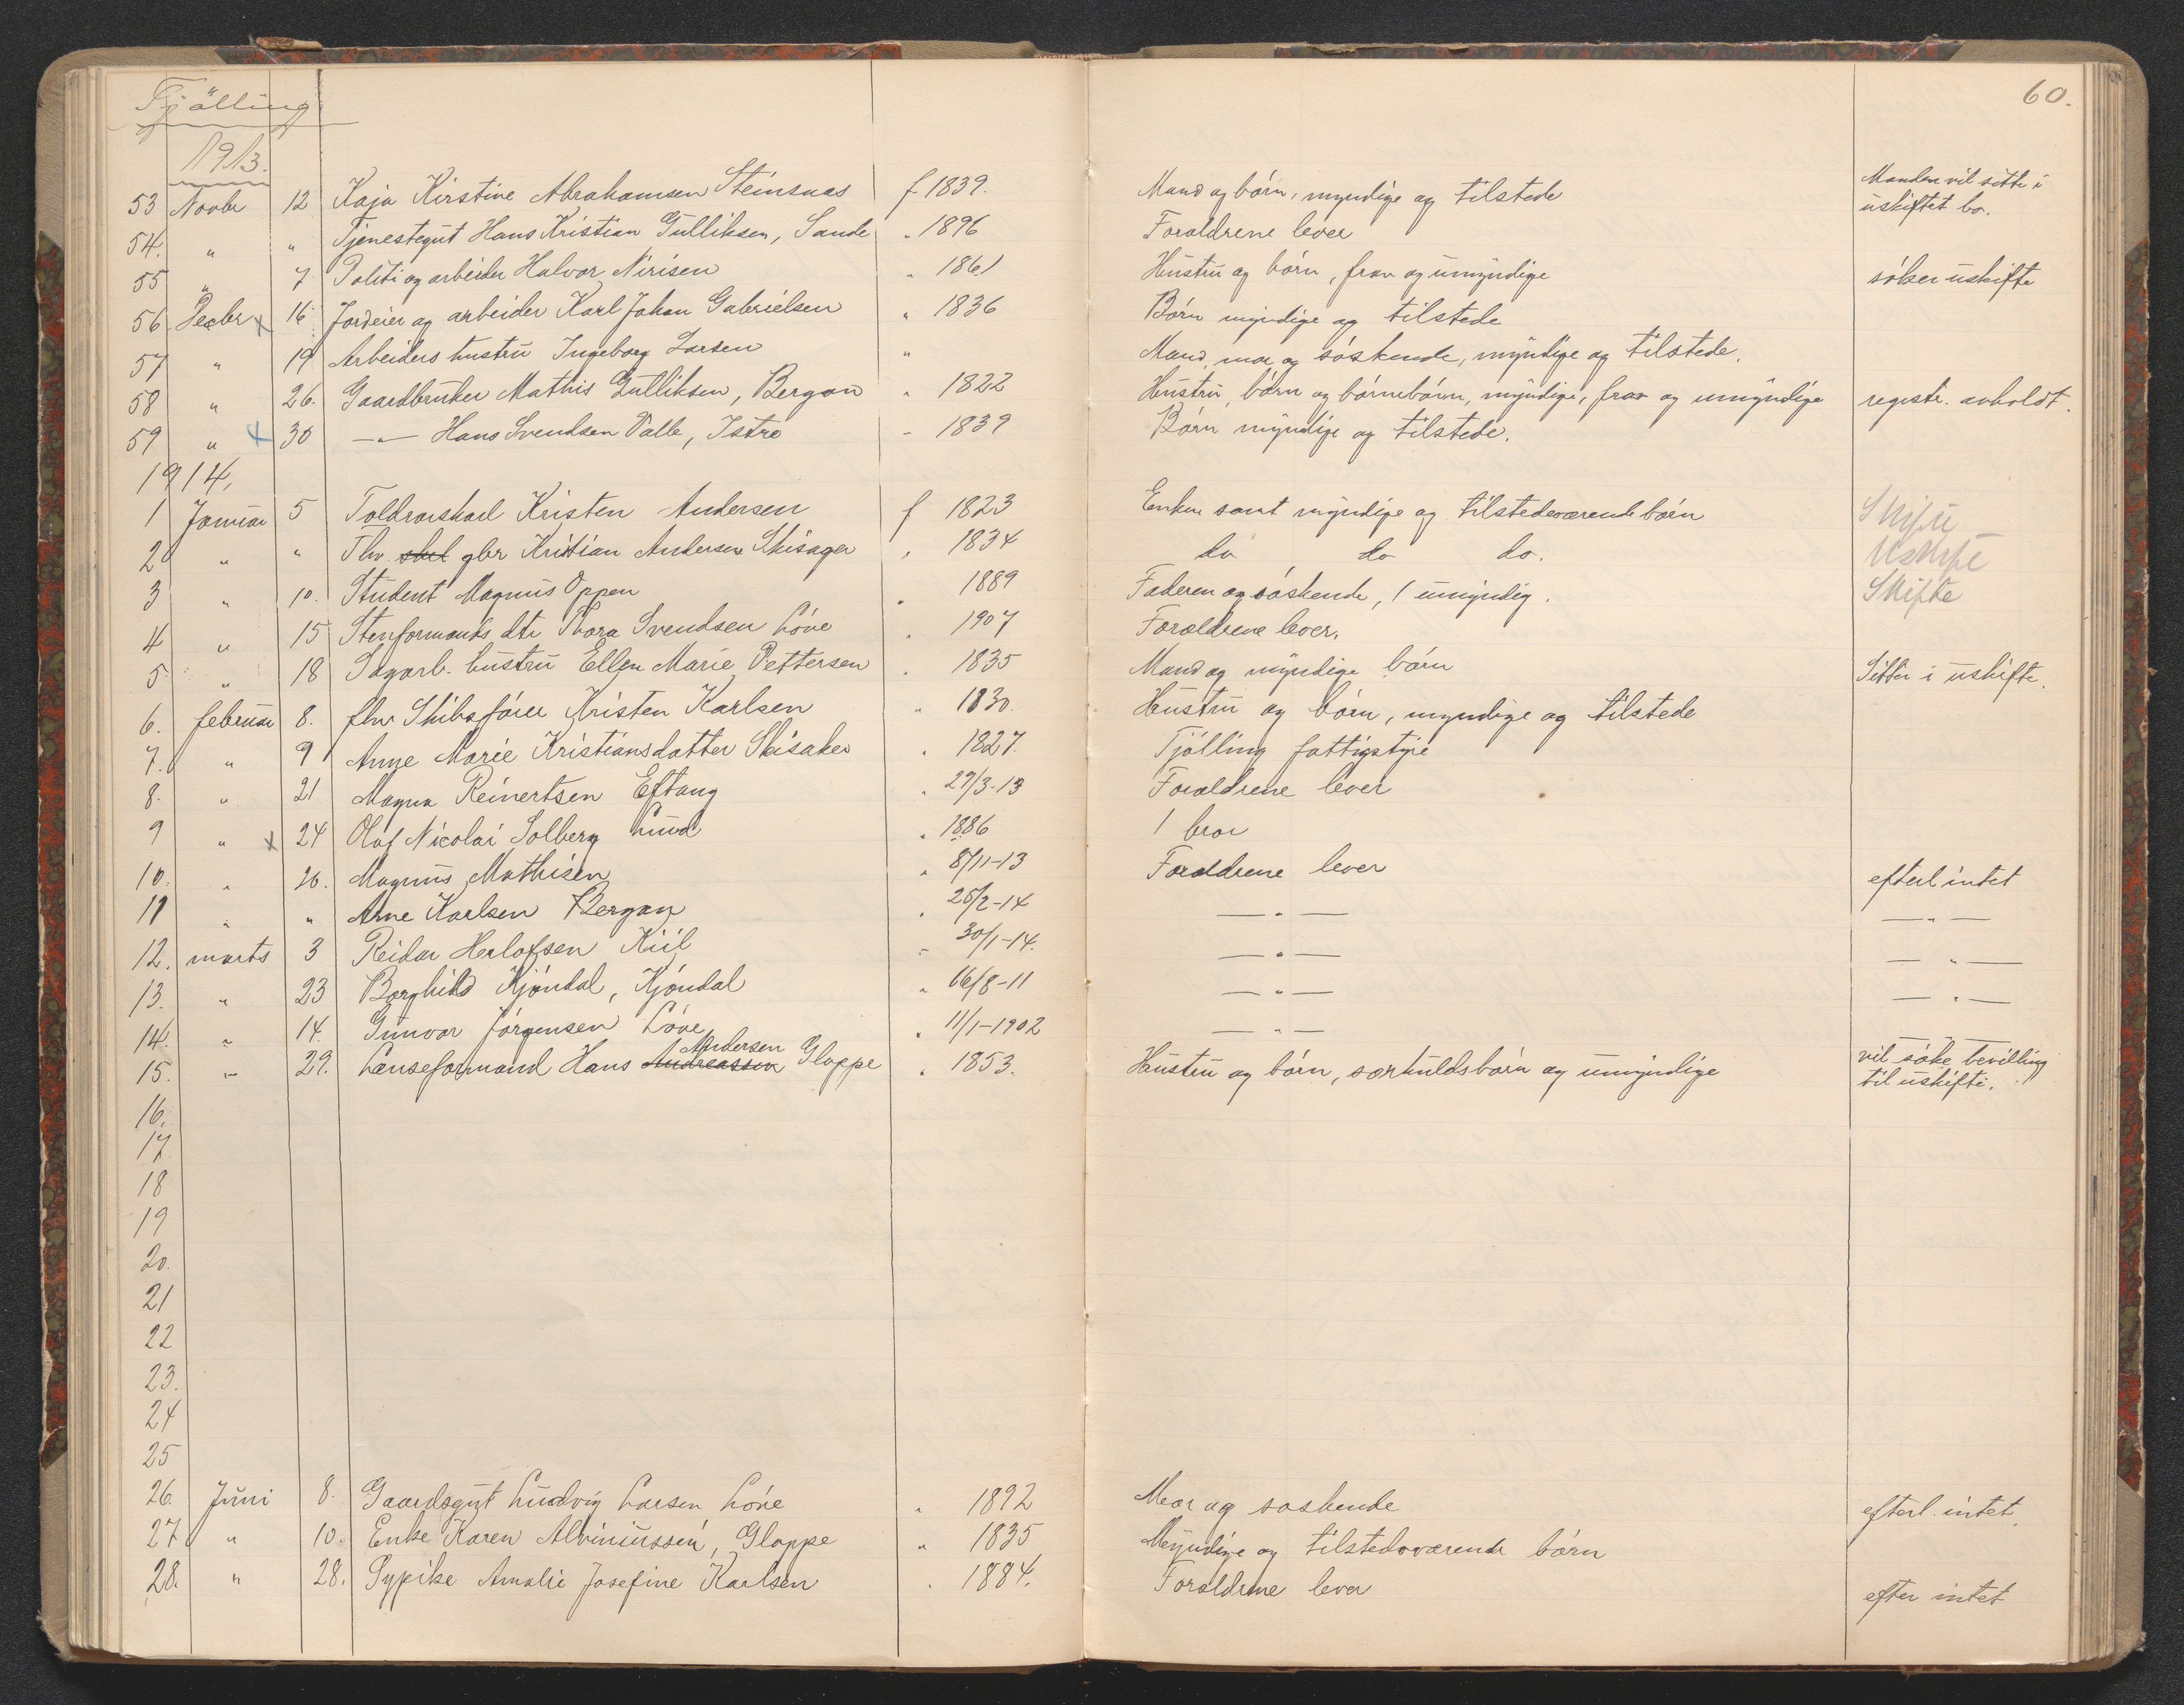 Tjölling
60.
1913.
53 Novbr 12 Kaja Kirstine Abrahamsen Steinsnæs f 1839. Mand og børn, myndige og tilstede Manden vil sitte i uskiftet bo.
54. " " Tjenestegut Hans Kristian Gulliksen, Sande " 1896 Forældrene lever
55 " 7 Politi og arbeider Halvor Nirisen " 1861 Hustru og børn, frav og umyndige søker uskifte
56. Decbr x 16 Jordeier og arbeider Karl Johan Gabrielsen " 1836 Børn myndige og tilstede
57 " 19 Arbeiders hustru Ingeborg Larsen " Mand, mor og søskende, myndige og tilstede.
58 " 26. Gaardbruker Mathis Gulliksen, Bergan " 1822 Hustru, børn og børnebørn, myndige, frav og umyndige registr. avholdt.
59 " x 30 —"— Hans Svendsen Valle, Istre " 1839 Børn myndige og tilstede.
1914,
1 Januar 5 Toldrorskarl Kristen Andersen f 1823 Enken samt myndige og tilstedeværende børn Skifte
2 " " Fhv skol gbr Kristian Andersen Skisager " 1834 do do do. Uskifte
3 " 10. Student Magnus Oppen " 1889 Faderen og søskende, 1 umyndig. Skifte
4 " 15 Stenformands dtr Thora Svendsen Løve " 1907 Forældrene lever.
5 " 18 Sagarb. hustru Ellen Marie Pettersen " 1835 Mand og myndige børn Sitter i uskifte.
6. februar 8. fhv Skibsfører Kristen Karlsen " 1830. Hustru og børn, myndige og tilstede
7. " 9 Anne Marie Kristiansdatter Skisaker " 1827. Tjølling fattigstyre
8. " 21 Magna Reinertsen Eftang " 27/3-13 Forældrene lever
9 " x 24 Olaf Nicolai Solberg Lund " 1886 1 bror
10. " 26. Magnus Mathisen " 8/11-13 Forældrene lever efterl intet
11 " " Arne Karlsen Bergan " 25/2-14 —"— —"—
12. marts 3 Reidar Herlofsen Kiil " 30/1-14. —"— —"—
13. " 23 Borghild Kjøndal, Kjøndal " 16/8-11 —"— —"—
14. " 14. Gunvor Jørgensen Løve " 11/1-1902 —"— —"—
15. " 29. Lænseformand Hans Andreassen Andersen Gloppe " 1853. Hustru og børn, særkuldsbørn og umyndige vil søke bevilling til uskifte.
16.
17
18
19
20.
21
22
23.
24
25
26. Juni 8. Gaardsgut Ludvig Larsen Løve " 1892 Mor og søskende efterl. intet,
27 " 10. Enke Karen Alviniussen, Gloppe " 1835 Myndige og tilstedeværende børn
28. " 28. Sypike Amalie Josefine Karlsen " 1884. Forældrene lever efter intet